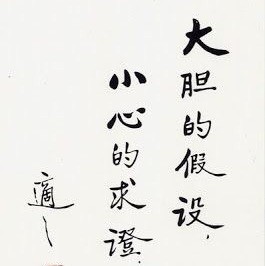 大胆的假设，
小心的求證，
適之